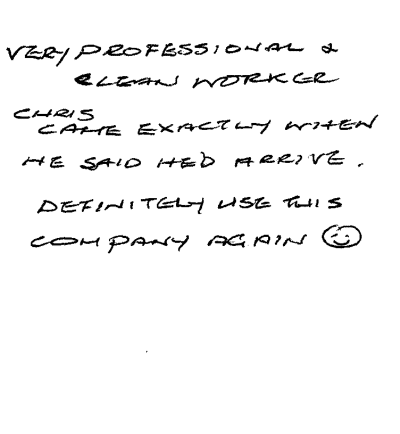 VERY PROFESSIONAL &
CLEAN WORKER
CHRIS
CAME EXACTLY WHEN
HE SAID HE'D ARRIVE.
DEFINITELY USE THIS
COMPANY AGAIN ☺